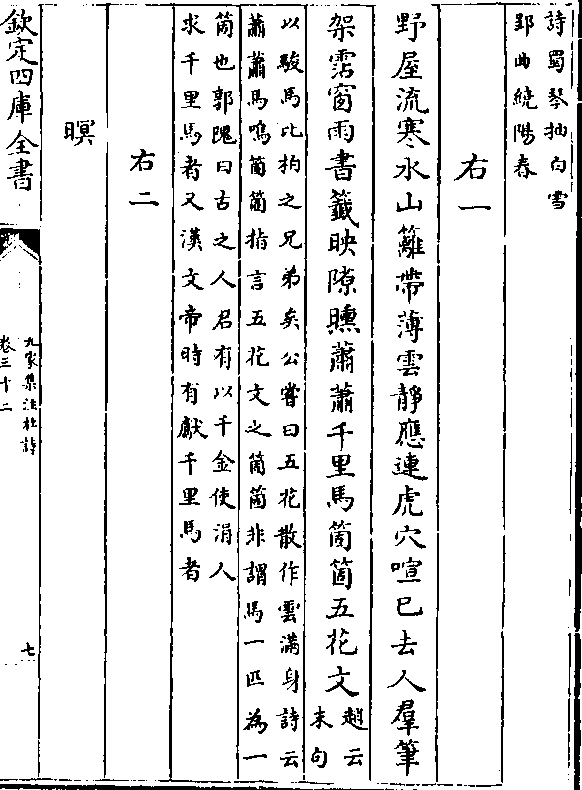 詩蜀琴抽白雪
郢曲繞陽春
右一
野屋流寒水山籬帶薄雲靜應連虎穴喧已去人羣筆
架霑窗雨書籤映隙曛蕭蕭千里馬箇箇五花文
趙云
末句
以駿馬比拘之兄弟矣公嘗曰五花散作雲滿身詩云
蕭蕭馬鳴箇箇指言五花文之箇箇非謂馬一匹為一
箇也郭隗曰古之人君有以千金使涓人
求千里馬者又漢文帝時有獻千里馬者
右二
暝
欽定四庫全書
九家集注杜詩
卷三十二
七